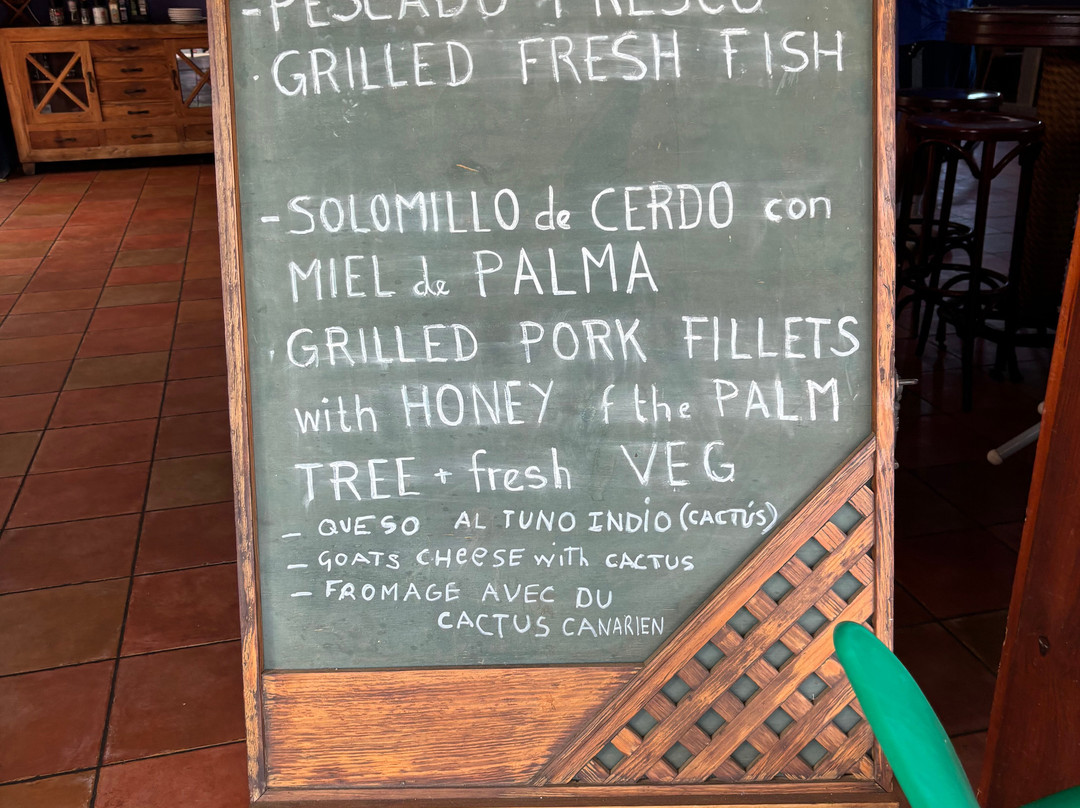 - PESCADO FRESCO
· GRILLED FRESH FISH
- SOLOMILLO de CERDO con
MIEL de PALMA
· GRILLED PORK FILLETS
with HONEY f the PALM
TREE + fresh VEG
- QUESO AL TUNO INDIO (CACTÚS)
- GOATS CHEESE with CACTUS
- FROMAGE AVEC DU
CACTUS CANARIEN